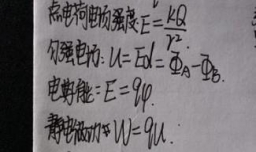 点电荷电场强度E=kQ/r².
匀强电场: U=Ed=Φ_A-Φ_B.
电势能: E=qφ.
静电力做功 W=qU.